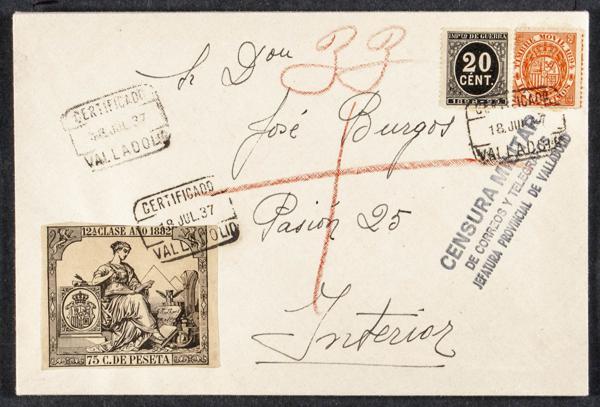 Sr Don
José Burgos
Pasión 25
Interior
33
IMPTO DE GUERRA
20
CENT.
TIMBRE MOVIL 1891
CERTIFICADO
18 JUL. 37
VALLADOLID
CERTIFICADO
18 JUL. 37
VALLADOLID
CERTIFICADO
18 JUL 37
VALLADOLID
CENSURA MILITAR
DE CORREOS Y TELEGR
JEFATURA PROVINCIAL DE VALLADOLID
12A CLASE AÑO 1882
75 C. DE PESETA